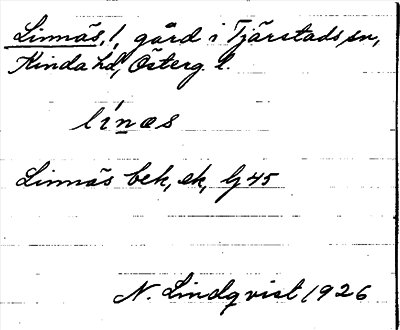 Linnäs, l, gård i Tjärstads sn,
Kinda hd, Österg. l.
línæs
Linnäs bek, ek, Gg 45
N. Lindqvist 1926